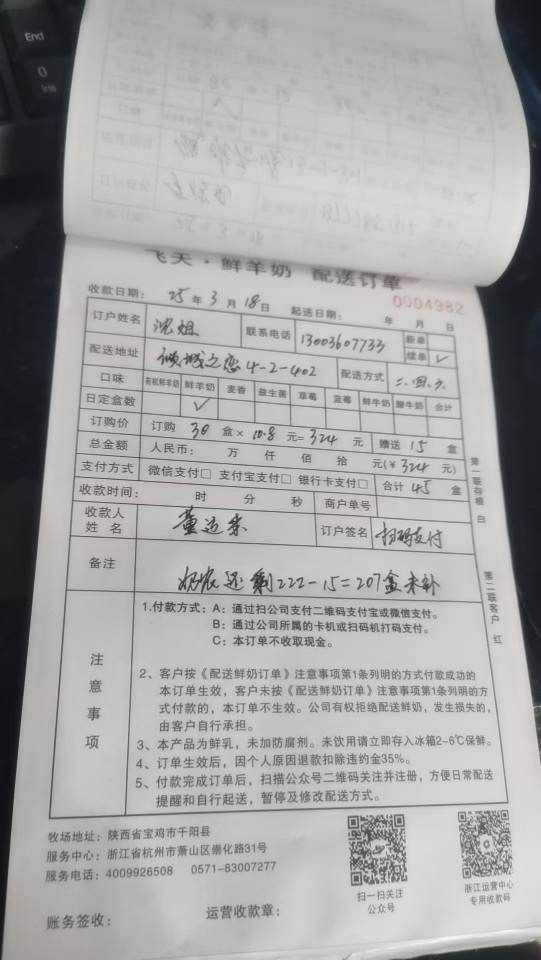 End
0
Ins
飞天·鲜羊奶 配送订单
0004982
收款日期: 25年3月18日 起送日期: 年 月 日
订户姓名 沈姐 联系电话 13003607733 新单
续单 ✓
配送地址 倾城之恋4-2-402 配送方式 二.四.六
口味 有机鲜羊奶 鲜羊奶 麦香 益生菌 草莓 蓝莓 鲜牛奶 酸牛奶 合计
日定盒数 ✓
订购价 订购 30 盒× 10.8 元= 324 元 赠送 15 盒
总金额 人民币: 万 仟 佰 拾 元(¥ 324 元)
支付方式 微信支付□ 支付宝支付□ 银行卡支付□ 合计 45 盒
收款时间: 时 分 秒 商户单号
收款人姓名 董 订户签名 扫码支付
备注 奶农还剩222-15=207盒未补
第一联存根 白
第二联客户 红
注意事项
1.付款方式: A: 通过扫公司支付二维码支付宝或微信支付。
B: 通过公司所属的卡机或扫码机打码支付。
C: 本订单不收取现金。
2、客户按《配送鲜奶订单》注意事项第1条列明的方式付款成功的
本订单生效，客户未按《配送鲜奶订单》注意事项第1条列明的方
式付款的，本订单不生效。公司有权拒绝配送鲜奶，发生损失的，
由客户自行承担。
3、本产品为鲜乳，未加防腐剂。未饮用请立即存入冰箱2-6℃保鲜。
4、订单生效后，因个人原因退款扣除违约金35%。
5、付款完成订单后，扫描公众号二维码关注并注册，方便日常配送
提醒和自行起送，暂停及修改配送方式。
牧场地址: 陕西省宝鸡市千阳县
服务中心: 浙江省杭州市萧山区崇化路31号
服务电话: 4009926508 0571-83007277
扫一扫关注
公众号
浙江运营中心
专用收款码
账务签收: 运营收款章: